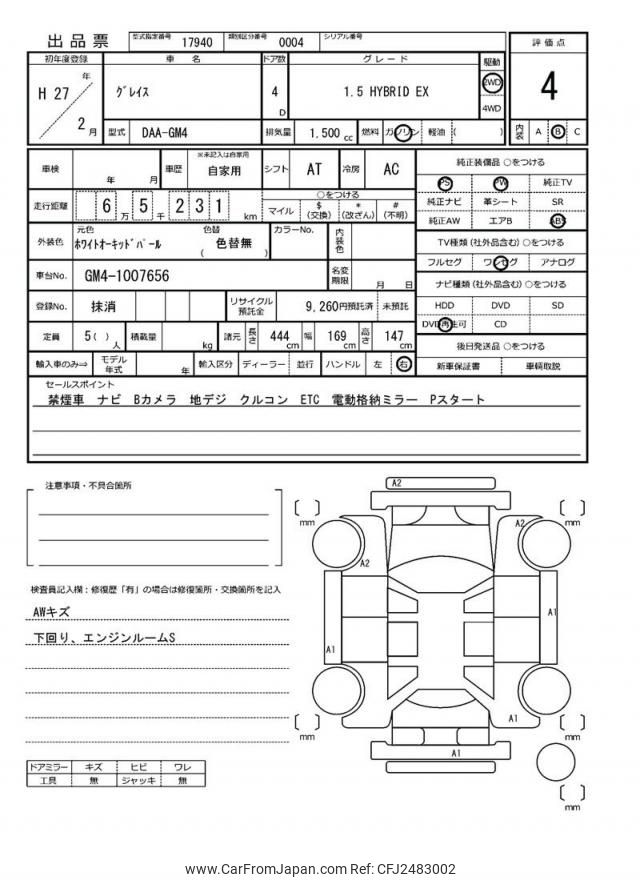 出品票 型式指定番号 17940 類別区分番号 0004 シリアル番号
初年度登録 車名 ドア数 グレード 駆動 評価点
H 27 年 2 月 グレイス 4 D 1.5 HYBRID EX 2WD 4WD 4
型式 DAA-GM4 排気量 1.500 cc 燃料 ガソリン 軽油 ( ) 内装 A B C
車検 年 月 車歴 ※未記入は自家用 自家用 シフト AT 冷房 AC
走行距離 6 万 5 千 2 3 1 km ○をつける マイル $ (交換) * (改ざん) # (不明)
外装色 元色 ホワイトオーキッドパール 色替 ( 色替無 ) カラーNo. 内装色
車台No. GM4-1007656 名変期限 月 日
登録No. 抹消 リサイクル預託金 9,260円預託済 未預託
定員 5 ( ) 人 積載量 kg 諸元 長さ 444 cm 幅 169 cm 高さ 147 cm
輸入車のみ⇒ モデル年式 年 輸入区分 ディーラー 並行 ハンドル 左 右
純正装備品 ○をつける
PS PW 純正TV
純正ナビ 革シート SR
純正AW エアB ABS
TV種類 (社外品含む) ○をつける
フルセグ ワンセグ アナログ
ナビ種類 (社外品含む) ○をつける
HDD DVD SD
DVD再生可 CD
後日発送品 ○をつける
新車保証書 車輌取説
セールスポイント
禁煙車 ナビ Bカメラ 地デジ クルコン ETC 電動格納ミラー Pスタート
注意事項・不具合箇所
検査員記入欄:修復歴「有」の場合は修復箇所・交換箇所を記入
AWキズ
下回り、エンジンルームS
ドアミラー キズ ヒビ ワレ
工具 無 ジャッキ 無
A2
mm mm
A2
A2
A1
A1
A1
mm mm
A1
mm
www.CarFromJapan.com Ref: CFJ2483002